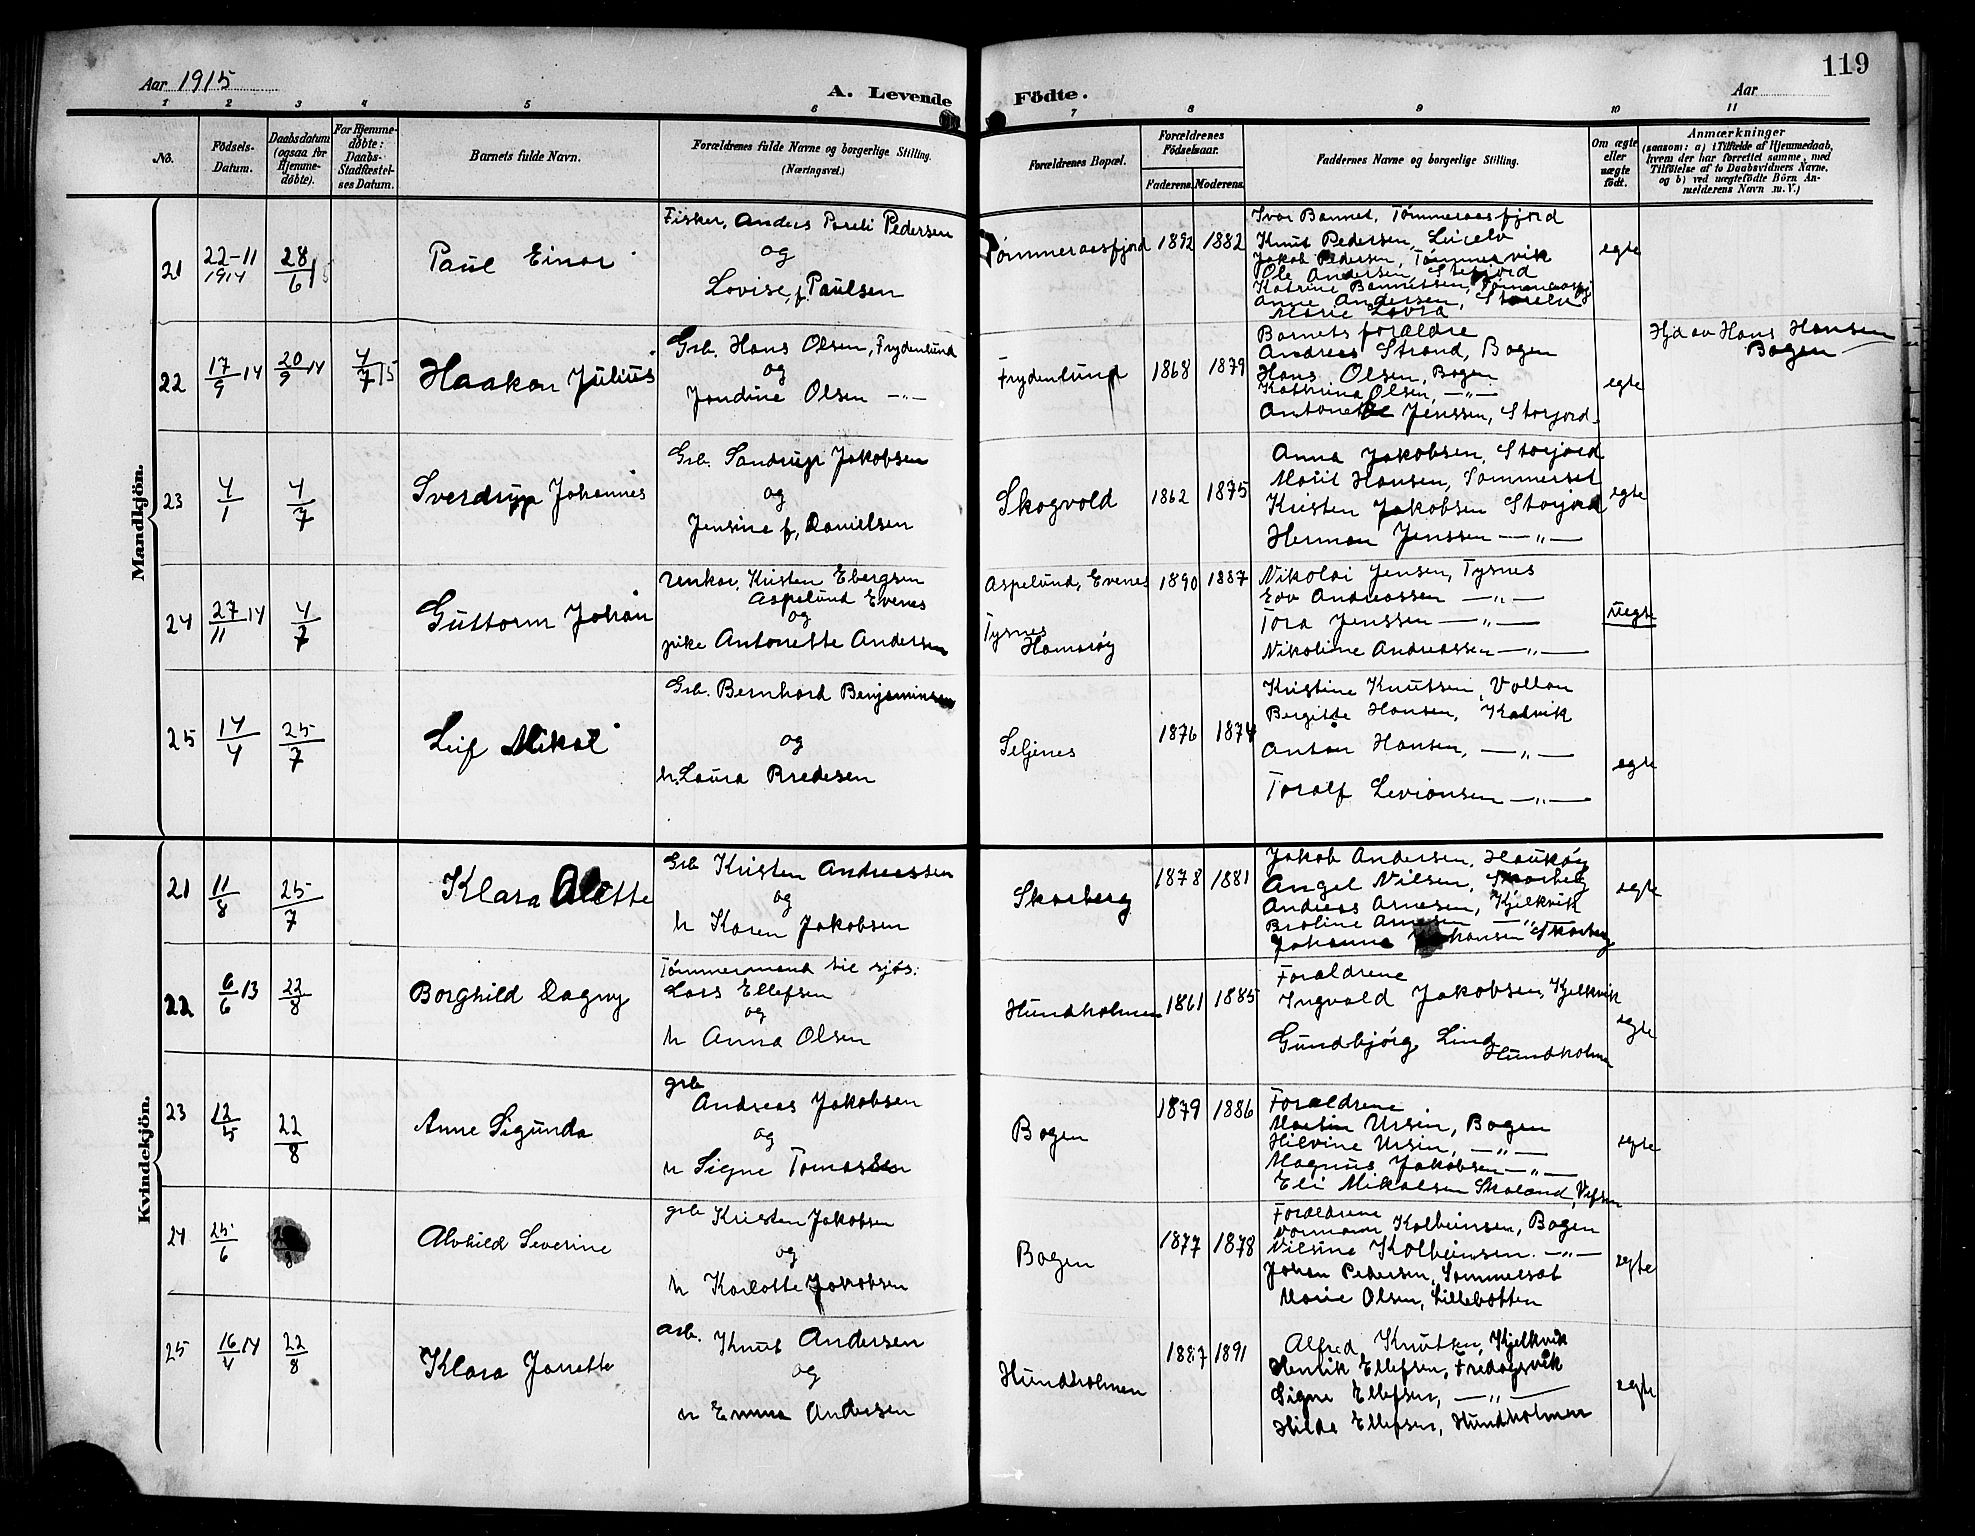 119
Aar 1915
A. Levende Födte.
Aar
1 2 3 4 5 6 7 8 9 10 11
No.
Födsels-Datum.
Daabsdatum (ogsaa for Hjemme-døbte).
For Hjemme-døbte: Daabs-Stadfæstel-ses Datum.
Barnets fulde Navn.
Forældrenes fulde Navne og borgerlige Stilling. (Næringsvei.)
Forældrenes Bopæl.
Forældrenes Födselsaar.
Faderens. Moderens.
Faddernes Navne og borgerlige Stilling.
Om ægte eller uægte födt.
Anmærkninger
(saasom: a) i Tilfælde af Hjemmedaab, hvem der har forrettet samme, med Tilföielse af to Daabsvidners Navne, og b) ved uægtefödte Börn An-melderens Navn m. V.)
Mandkjön.
21 22-11 1914 28/6 15 Paul Einar
Fisker, Anders Pareli Pedersen
og
Lovise, f. Paulsen
Tømmeraasfjord 1892 1882
Ivar Bannet, Tømmeraasfjord
Knut Pedersen, Leirelv
Jakob Pedersen, Tømmervik
Ole Andersen, Stefjord
Katrine Bennetsen,
Anne Andersen, Storelv
Marie Lovra
egte
22 17/9 14 20/9 14 4/7 15 Haakon Julius
Grb. Hans Olsen, Frydenlund
og
Jondine Olsen —"—
Frydenlund 1868 1879
Barnets forældre
Andreas Strand, Bogen
Hans Olsen, Bogen
Kathrina Olsen, —"—
Antonette Jenssen, Storjord
egte
Hjd av Hans Hansen
Bogen
23 4/1 4/7 Sverdrup Johannes
Grb. Sandrup Jakobsen
og
Jensine f, Danielsen
Skogvold 1862 1875
Anna Jakobsen, Storjord
Marit Hansen, Sommerset
Kristen Jakobsen Storjord
Herman Jenssen —"—
egte
24 27/11 14 4/7 Guttorm Johan
Unkar, Kristen Ebergsen
Aspelund Evenes
og
pike Antonette Andersen
Aspelund, Evenes
Tysnes
Hamarøy
1890 1887
Nikolai Jensen, Tysnes
Edv Andreassen —"—
Tora Jenssen —"—
Nikoline Andreassen —"—
uegte
25 14/4 25/7 Leif Mikal
Grb. Bernhard Benjaminsen
og
h. Laura Bredesen
Seljenes 1876 1874
Kristine Knutsen, Vollan
Bergitte Hansen, Kalvik
Anton Hansen, —"—
Toralf Levionsen —"—
egte
Kvindekjön.
21 11/8 25/7 Klara Alette
Grb Kristen Andreassen
og
h Karen Jakobsen
Skarberg 1878 1881
Jakob Andersen, Haukøy
Angel Nilsen, Skarberg
Andreas Arnesen, Kjelkvik
Broline Arnesen —"—
Johanna Johansen Skarberg
egte
22 6/6 13 22/8 Borghild Dagny
Tømmermand til sjøs:
Lars Ellefsen
og
h Anna Olsen
Hundholmen 1861 1885
Forældrene
Ingvald Jakobsen, Kjelkvik
Gundbjørg Lind
Hundholmen
egte
23 12/5 22/8 Anne Sigunda
grb
Andreas Jakobsen
og
h Signe Tomassen
Bogen 1879 1886
Forældrene
Martin Ursin, Bogen
Hilvine Ursin, —"—
Magnus Jakobsen —"—
Eli Mikalsen Skaland, Vefsen
egte
24 25/6 Alvhild Severine
grb Kristen Jakobsen
og
h Karlotte Jakobsen
Bogen 1877 1878
Forældrene
Normann Kolbeinsen, Bogen
Nilsine Kolbeinsen. —"—
Johan Pedersen, Sommerset
Marie Olsen, Lillebotten
egte
25 16/4 14 22/8 Klara Janette
arb. Knut Andersen
og
h Emma Andersen
Hundholmen 1887 1891
Alfred Knutsen, Kjelkvik
Henrik Ellefsen, Fredagsvik
Signe Ellefsen, —"—
Hilda Ellefsen, Hundholmen
egte